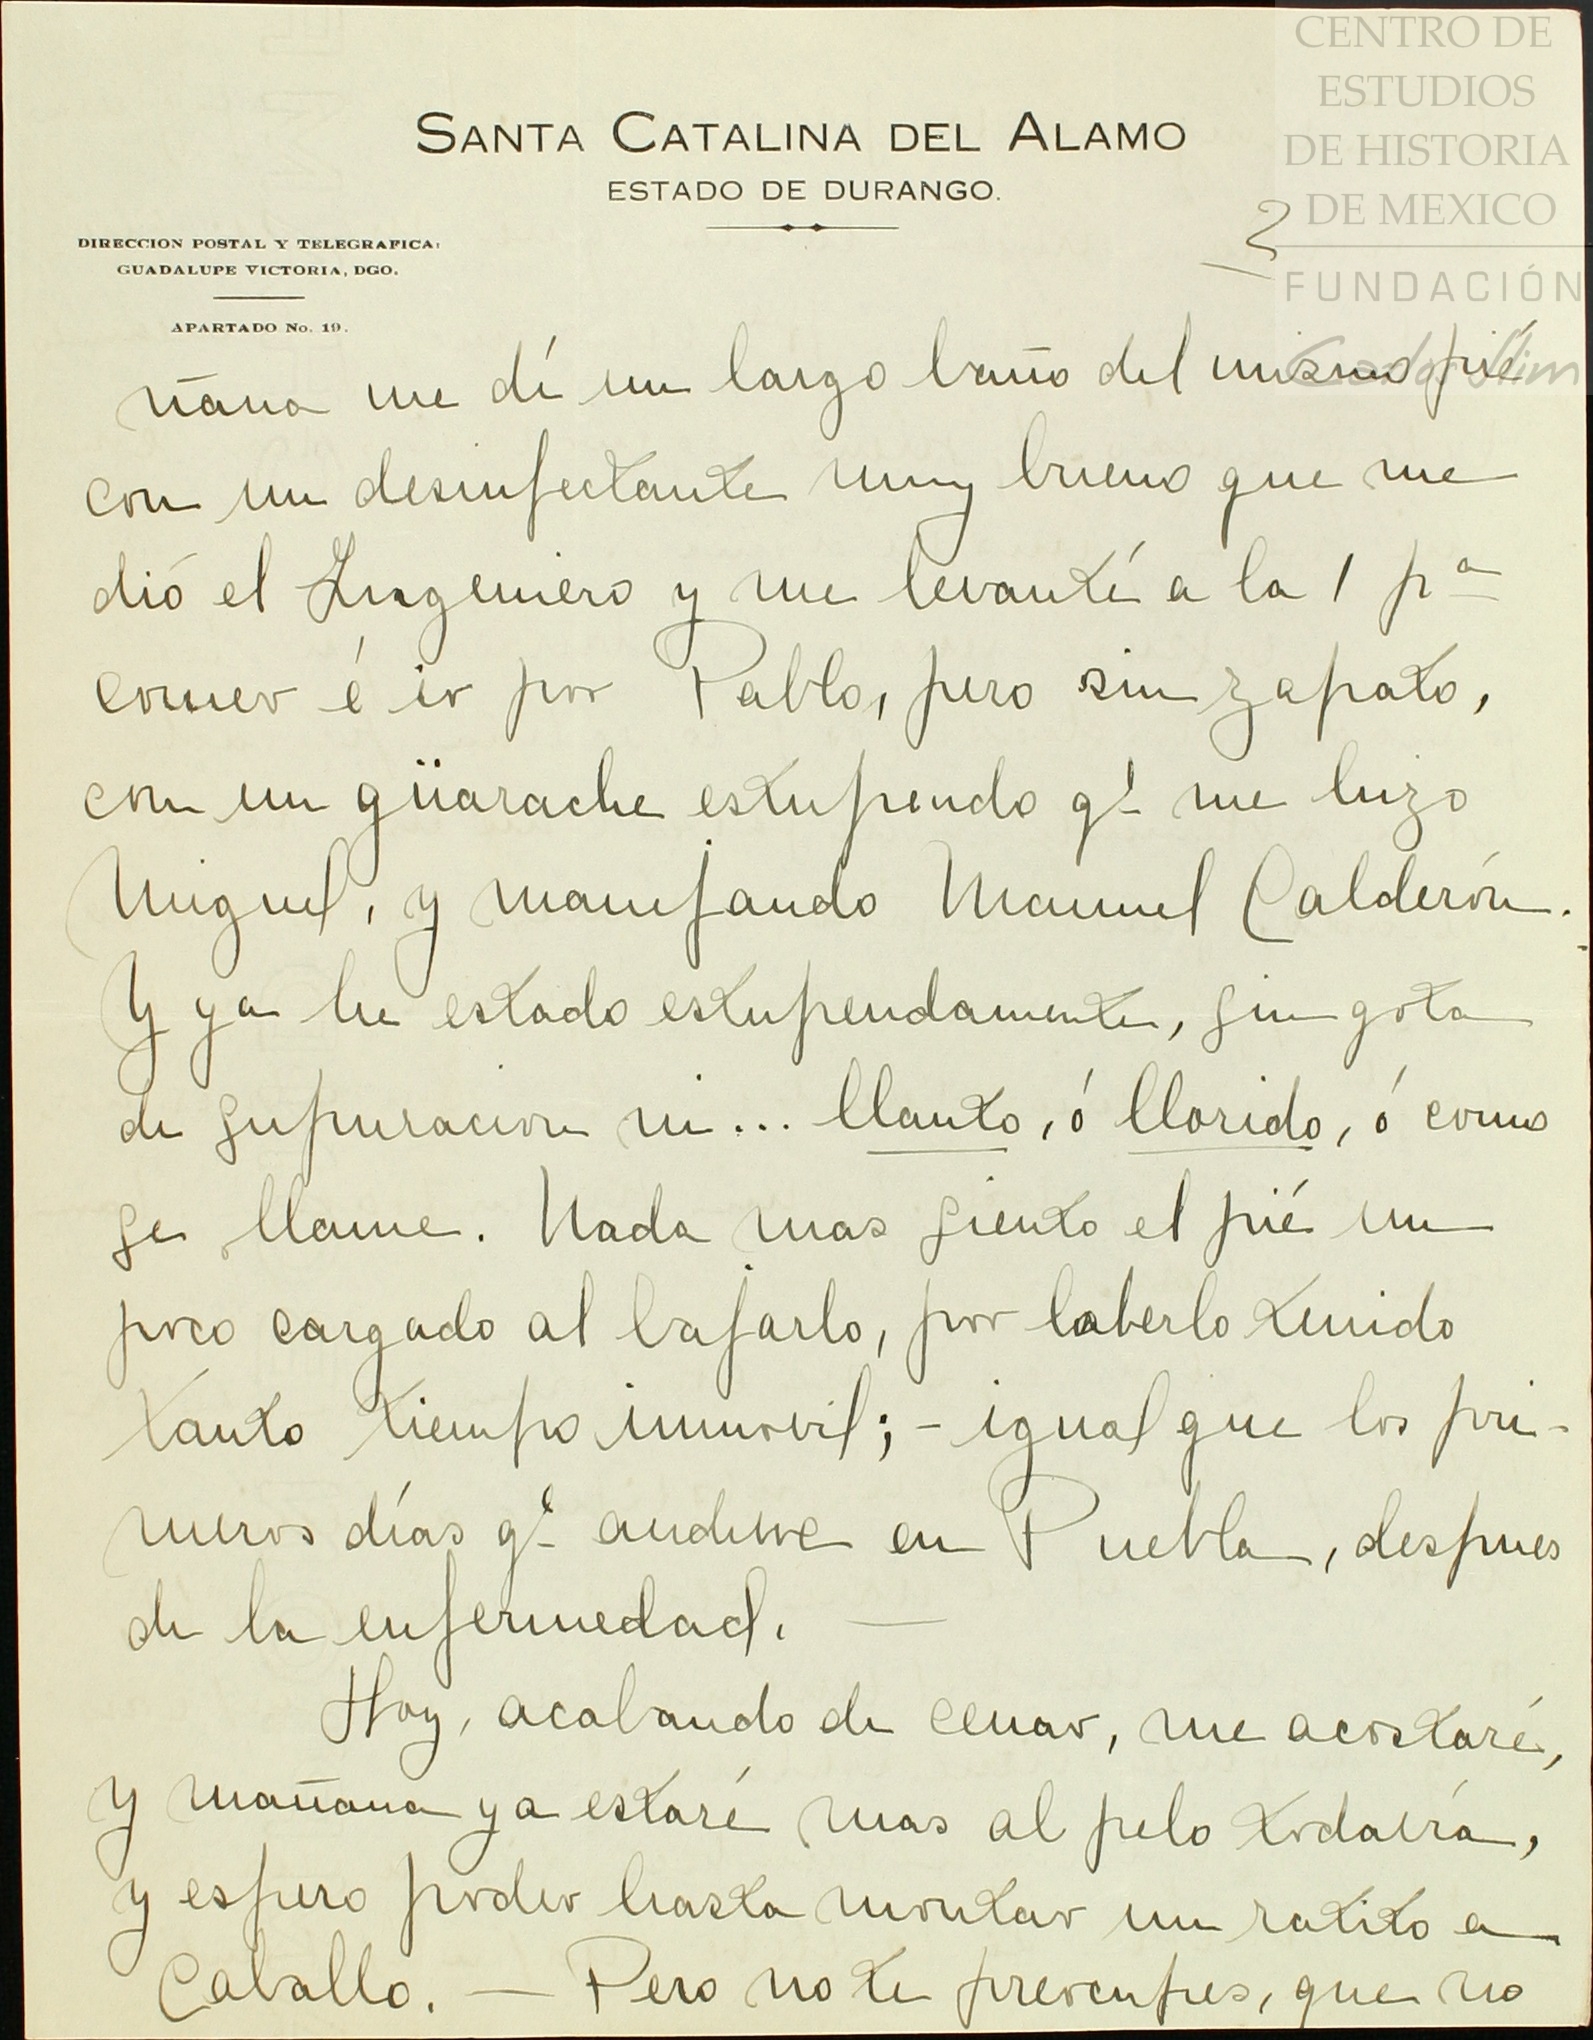 CENTRO DE
ESTUDIOS
DE HISTORIA
DE MEXICO
FUNDACIÓN
Carlos Slim
SANTA CATALINA DEL ALAMO
ESTADO DE DURANGO.
DIRECCION POSTAL Y TELEGRAFICA:
GUADALUPE VICTORIA, DGO.
APARTADO No. 19.
2
ñana me dí un largo baño del mismo pié
con un desinfectante muy bueno que me
dió el Ingeniero y me levanté a la 1 pª
comer é ir por Pablo, pero sin zapato,
con un güarache estupendo qe me hizo
Miguel, y manejando Manuel Calderón.
Y ya he estado estupendamente, sin gota
de supuracion ni... llanto, ó llorido, ó como
se llame. Nada mas siento el pié un
poco cargado al bajarlo, por haberlo tenido
tanto tiempo inmovil; - igual que los pri-
meros días qe anduve en Puebla, despues
de la enfermedad. —
Hoy, acabando de cenar, me acostaré,
y mañana ya estaré mas al pelo todavía,
y espero poder hasta montar un ratito a
Caballo. — Pero no te preocupes, que no